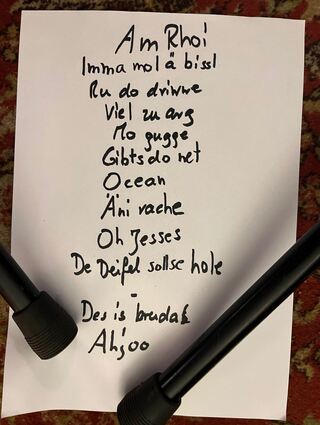 Am Rhoi
Imma mol ä bissl
Ru do driwwe
Viel zu arg
Mo gugge
Gibts do net
Ocean
Äni rache
Oh Jesses
De Deifel sollse hole
-
Des is brudal
Ahjoo